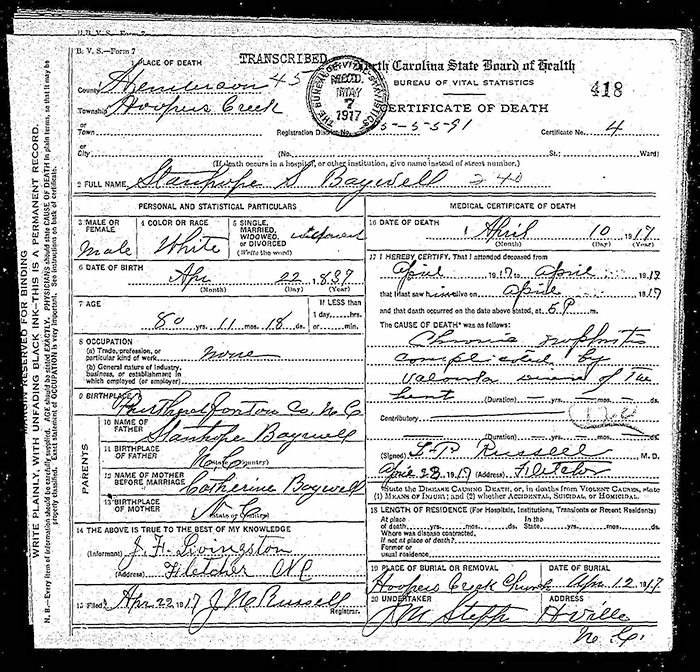 B. V. S.—Form 7
TRANSCRIBED
North Carolina State Board of Health
BUREAU OF VITAL STATISTICS
CERTIFICATE OF DEATH
418
THE BUREAU OF VITAL STATISTICS
RECD.
MAY
7
1917
1 PLACE OF DEATH
County Henderson 45
Township Hoopers Creek
Town
Registration District No. 5-5591
Certificate No. 4
or
City (No. St.; Ward)
(If death occurs in a hospital, or other institution, give name instead of street number.)
2 FULL NAME Stanhope S Baywell 240
PERSONAL AND STATISTICAL PARTICULARS
3 MALE OR FEMALE
Male
4 COLOR OR RACE
White
5 SINGLE, MARRIED, WIDOWED, or DIVORCED
(Write the word)
widowed
6 DATE OF BIRTH
Apr 22 1837
(Month) (Day) (Year)
7 AGE
80 yrs. 11 mos. 18 ds.
If LESS than
1 day, hrs.
or min.
8 OCCUPATION
(a) Trade, profession, or
particular kind of work
none
(b) General nature of industry,
business, or establishment in
which employed (or employer)
9 BIRTHPLACE
Co. N C
PARENTS
10 NAME OF FATHER Stanhope Baywell
11 BIRTHPLACE OF FATHER N C
(State or Country)
12 NAME OF MOTHER BEFORE MARRIAGE Catherine Baywell
13 BIRTHPLACE OF MOTHER N C
(State or Country)
14 THE ABOVE IS TRUE TO THE BEST OF MY KNOWLEDGE
(Informant) J. H. Livingston
(Address) Fletcher NC
15 Filed Apr 22 1917 J N Russell
Registrar.
MEDICAL CERTIFICATE OF DEATH
16 DATE OF DEATH
April 10 1917
(Month) (Day) (Year)
17 I HEREBY CERTIFY, That I attended deceased from
April 1917 to April 1917
that I last saw him alive on April 1917
and that death occurred on the date above stated, at 5 P m.
The CAUSE OF DEATH* was as follows:
Chronic
complicated by
of the
(Duration) yrs. mos. ds.
Contributory
(Duration) yrs. mos. ds.
(Signed) L. P. Russell M. D.
April 23 1917 (Address) Fletcher
*State the DISEASE CAUSING DEATH, or, in deaths from VIOLENT CAUSES, state
(1) MEANS OF INJURY; and (2) whether ACCIDENTAL, SUICIDAL, or HOMICIDAL.
18 LENGTH OF RESIDENCE (For Hospitals, Institutions, Transients or Recent Residents)
At place of death yrs. mos. ds. In the State yrs. mos. ds.
Where was disease contracted,
if not at place of death?
Former or
usual residence
19 PLACE OF BURIAL OR REMOVAL
Hoopers Creek Church
DATE OF BURIAL
Apr. 12 1917
20 UNDERTAKER
J M Stepp
ADDRESS
Hville
N C.
MARGIN RESERVED FOR BINDING
WRITE PLAINLY, WITH UNFADING BLACK INK—THIS IS A PERMANENT RECORD.
N. B.—Every item of information should be carefully supplied. AGE should be stated EXACTLY. PHYSICIANS should state CAUSE OF DEATH in plain terms, so that it may be
properly classified. Exact statement of OCCUPATION is very important. See instructions on back of certificate.